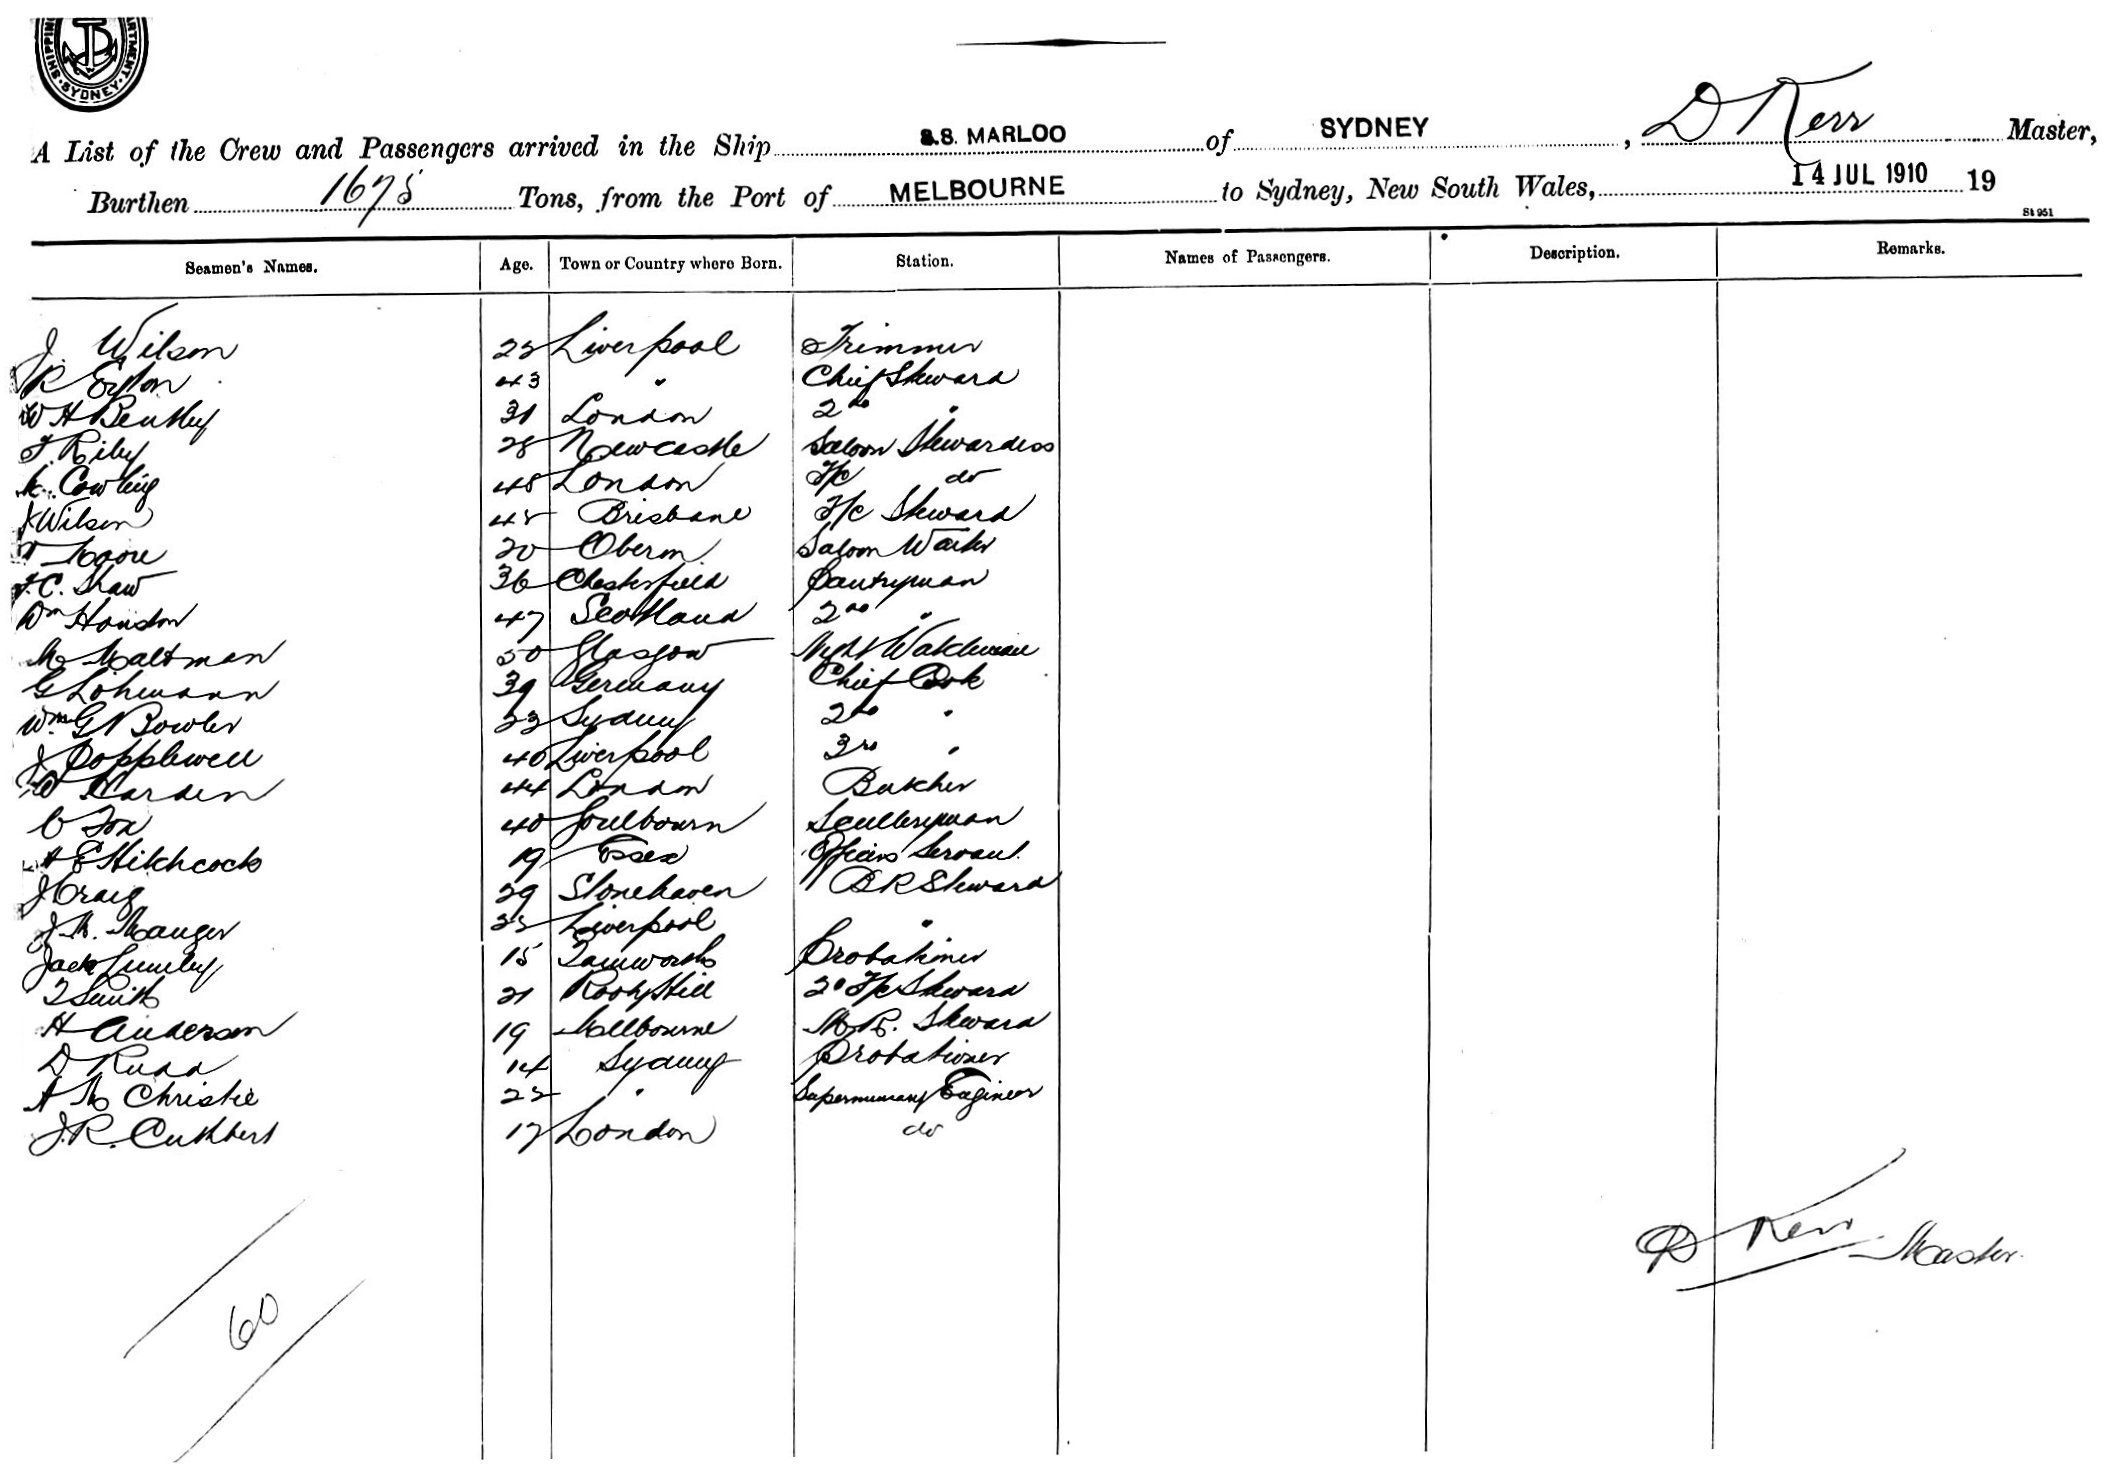 SYDNEY
A List of the Crew and Passengers arrived in the Ship S.S. MARLOO of SYDNEY, D Kerr Master,
Burthen 1675 Tons, from the Port of MELBOURNE to Sydney, New South Wales, 14 JUL 1910 19
St 951
Seamen's Names. Age. Town or Country where Born. Station. Names of Passengers. Description. Remarks.
J Wilson Liverpool Trimmer
R Eyton 43 " Chief Steward
W H Bentley 31 London 2nd "
F. Riley 28 Newcastle Saloon Stewardess
K. Cowling 48 London F/c do
J Wilson Brisbane F/c Steward
Moore 20 Oberon Saloon Waiter
F. C. Shaw 36 Chesterfield Pantryman
Wm Houston 47 Scotland 2nd "
M Maltman 50 Glasgow Night Watchman
G Löhmann 39 Germany Chief Cook
Wm G N Bowler 23 Sydney 2nd "
J Popplewell 40 Liverpool 3rd "
Harden 44 London Butcher
C Fox 40 Goulbourn Sculleryman
A E Hitchcock 19 Essex Officers Servant.
J Craig 29 Stonehaven B R Steward
J. M. Mauger Liverpool "
Jack Lumley 15 Tamworth Probationer
T Smith 21 Rooty Hill 2nd F/c Steward
H Anderson 19 Melbourne M. R. Steward
D Rudd 14 Sydney Probationer
A M Christie 22 " Supernumary Engineer
J. R. Cuthbert 17 London do
D Kerr Master.
60